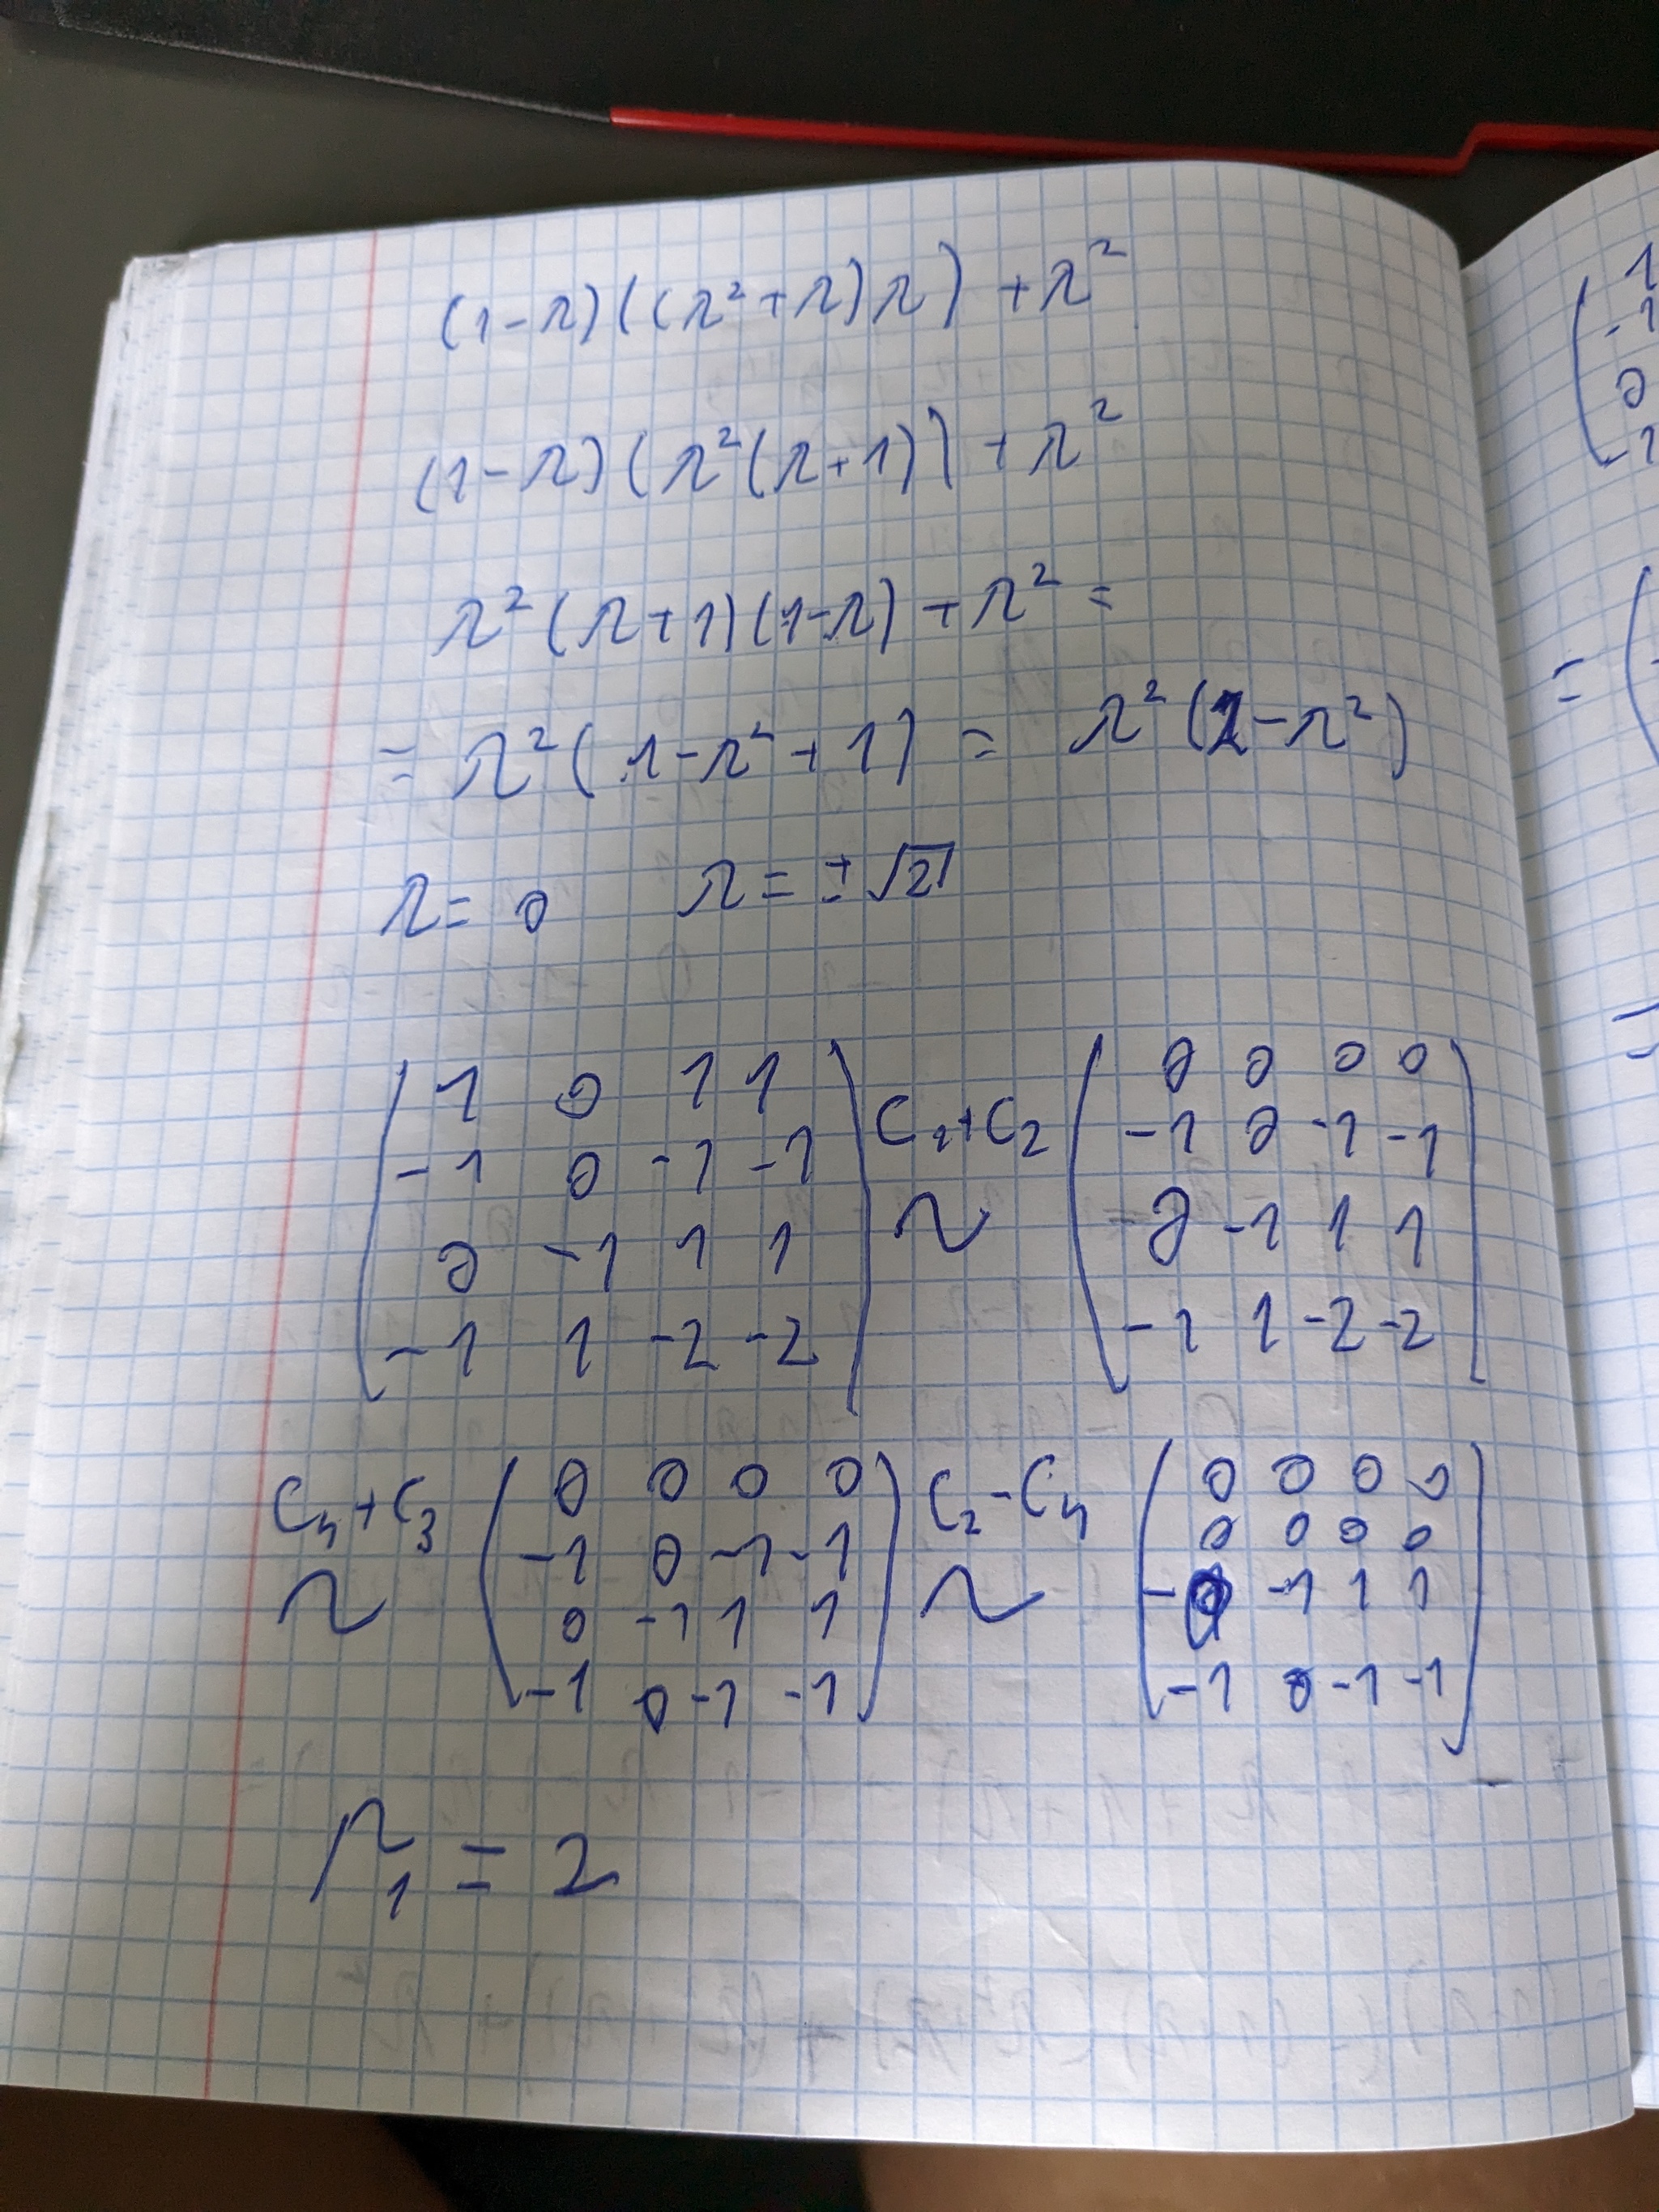 (1-λ)((λ²+λ)λ)+λ²
(1-λ)(λ²(λ+1))+λ²
λ²(λ+1)(1-λ)+λ²=
=λ²(1-λ²+1) = λ²(2-λ²)
λ=0 λ=±√2
1 0 1 1
-1 0 -1 -1
0 -1 1 1
-1 1 -2 -2
C₁+C₂
~
0 0 0 0
-1 0 -1 -1
0 -1 1 1
-1 1 -2 -2
C₄+C₃
~
0 0 0 0
-1 0 -1 -1
0 -1 1 1
-1 0 -1 -1
C₂-C₄
~
0 0 0 0
0 0 0 0
-0 -1 1 1
-1 0 -1 -1
₁ = 2
1
-1
0
-1
=